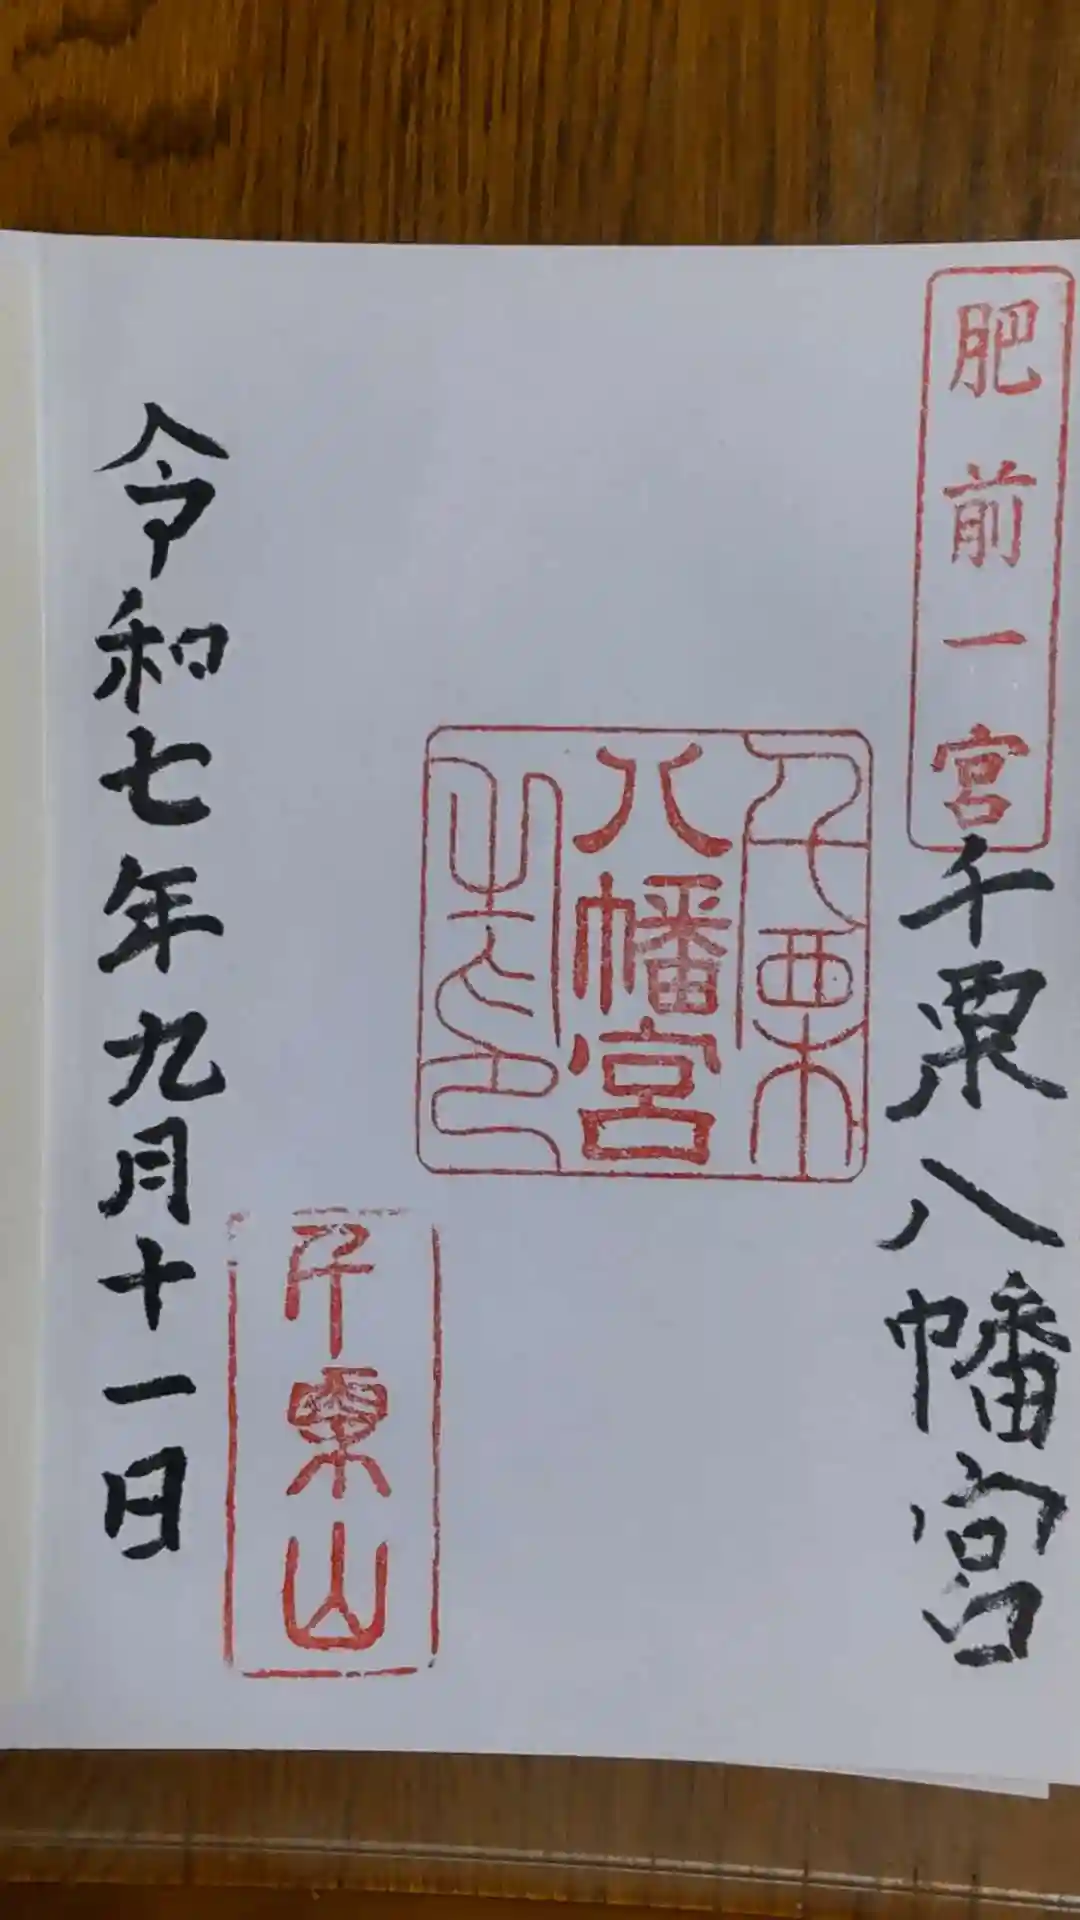 肥前一宮
千栗八幡宮
千栗
八幡宮
之印
千栗山
令和七年九月十一日